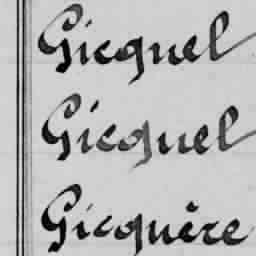 Gicquel
Gicquel
Gicquère